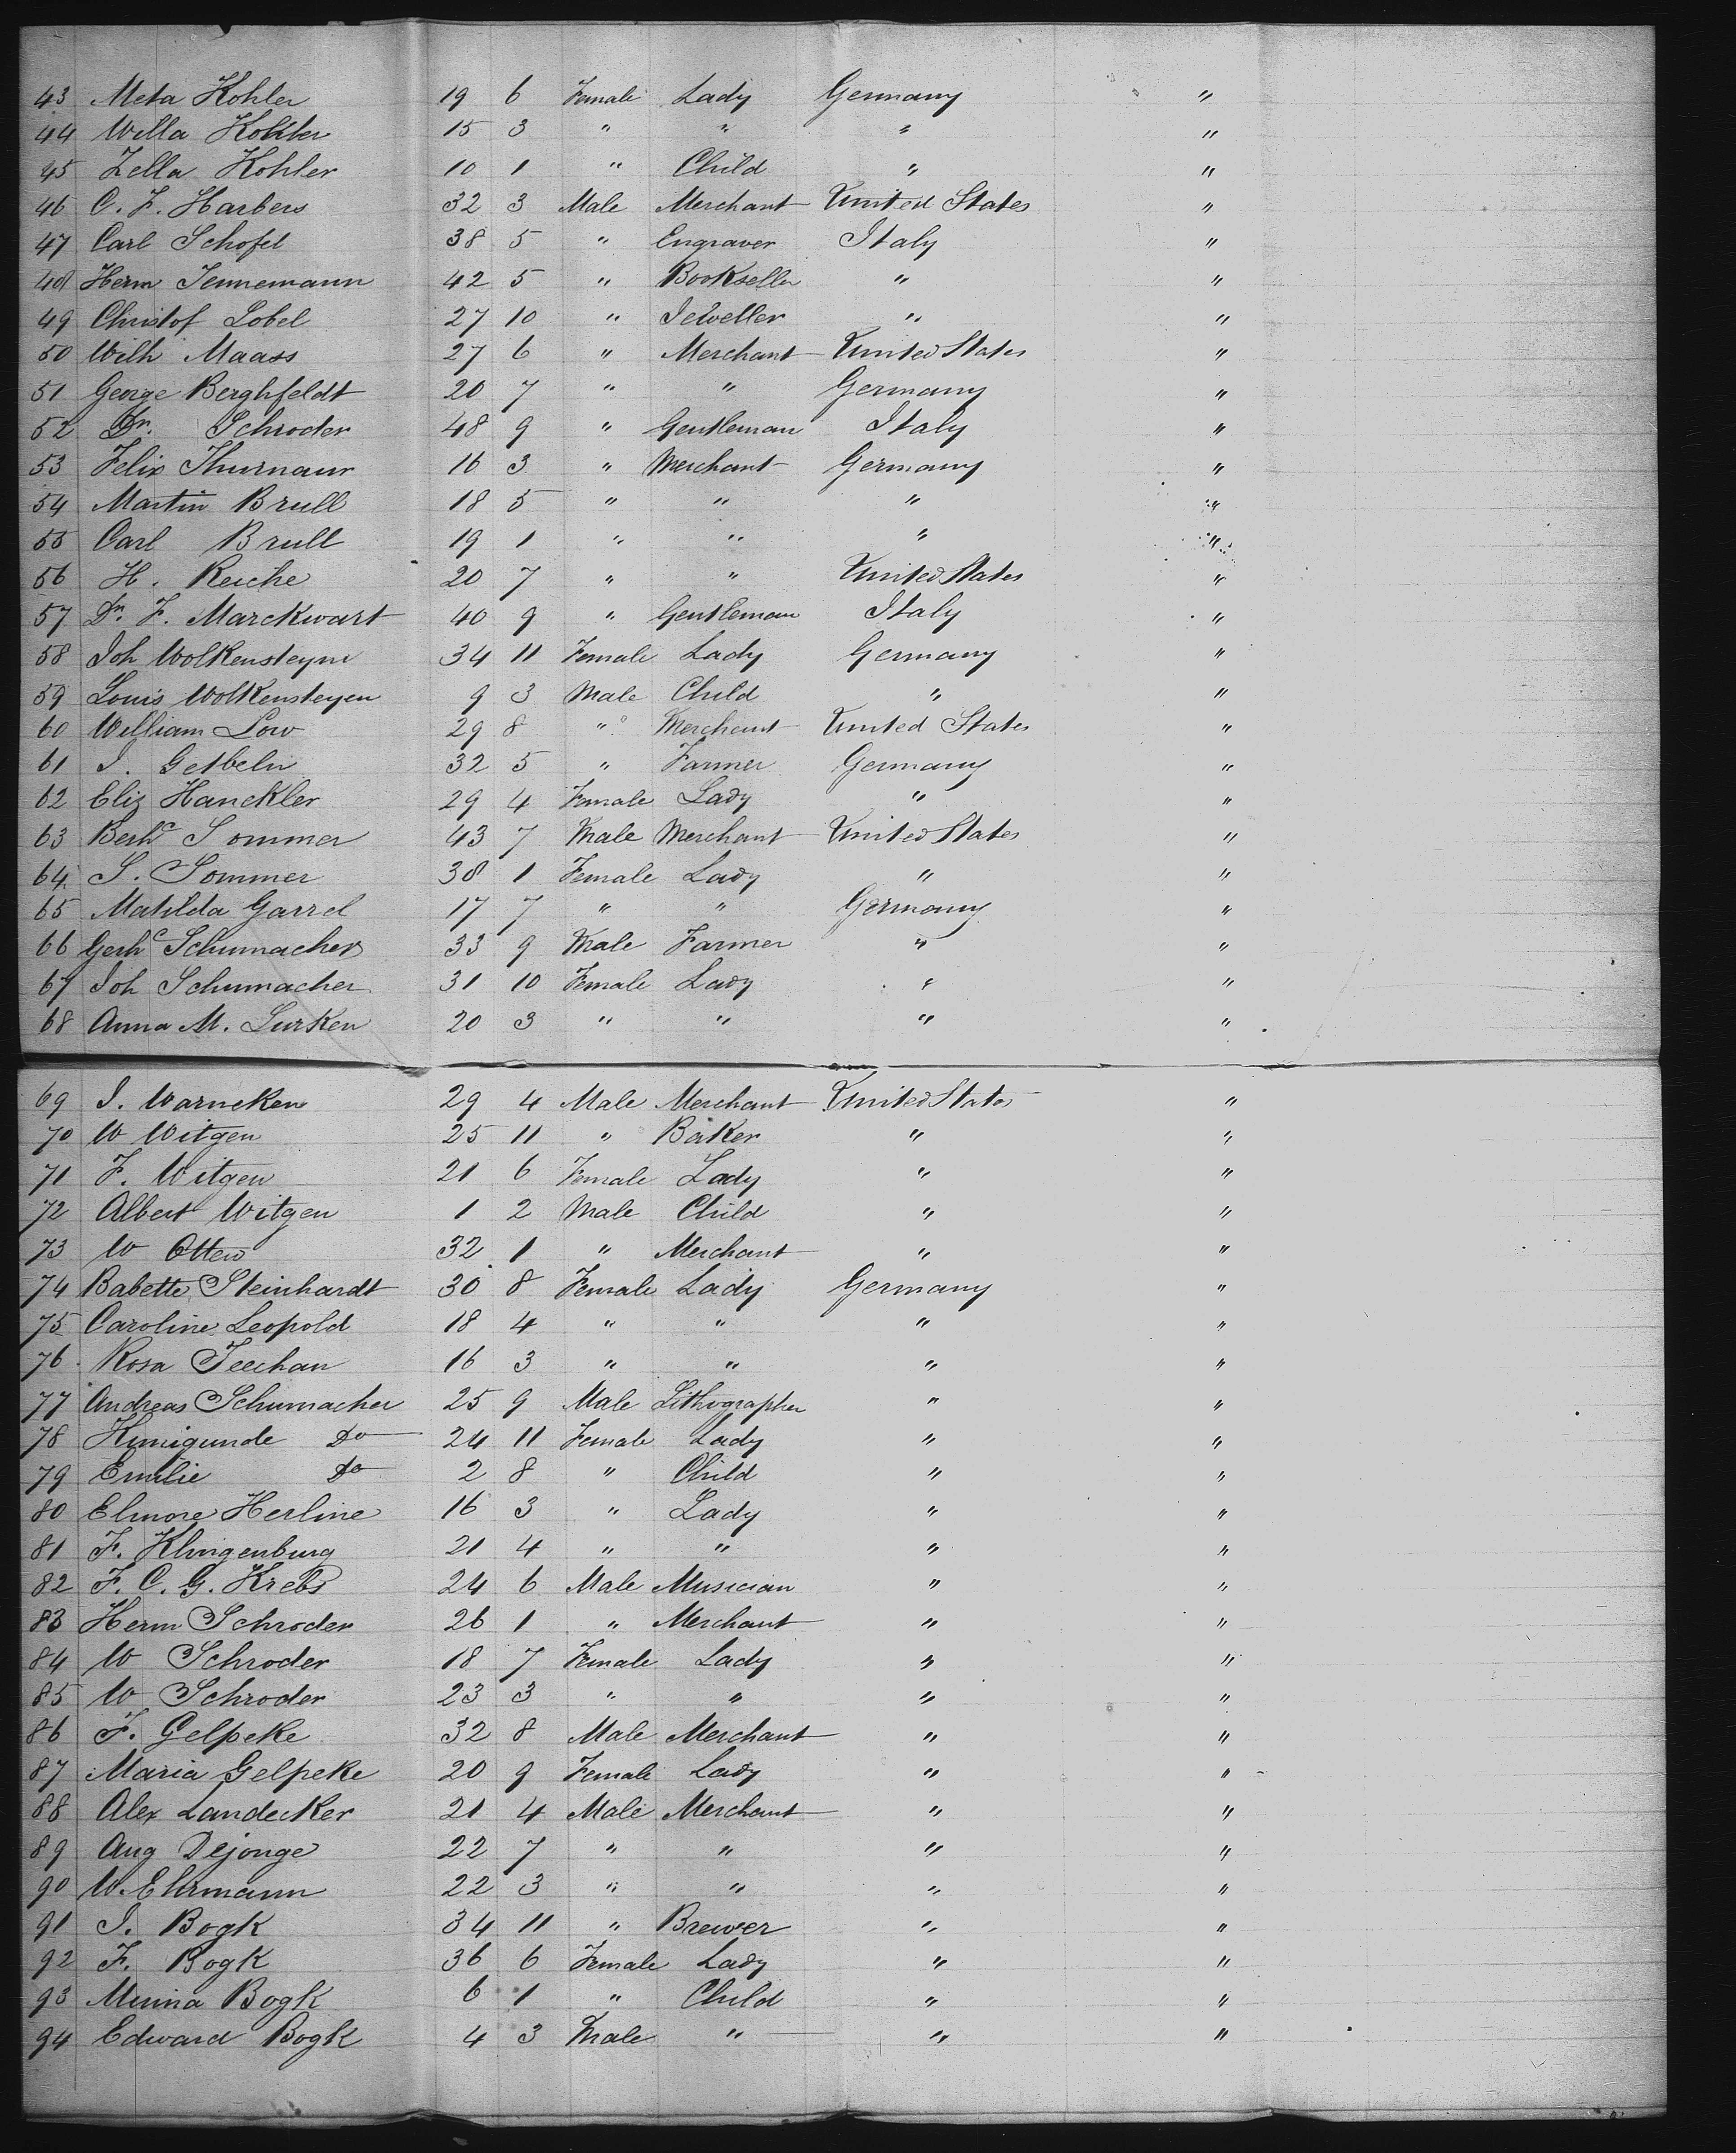 43 Meta Kohler 19 6 Female Lady Germany "
44 Willa Kohler 15 3 " " " "
45 Zella Kohler 10 1 " Child " "
46 C. F. Harbers 32 3 Male Merchant United States "
47 Carl Schofel 38 5 " Engraver Italy "
48 Herm Tennemann 42 5 " Bookseller " "
49 Christof Lobel 27 10 " Jeweller " "
50 Wilh Maass 27 6 " Merchant United States "
51 George Berghfeldt 20 7 " " Germany "
52 Dr. Schroder 48 9 " Gentleman Italy "
53 Felix Thurnaur 16 3 " Merchant Germany "
54 Martin Brull 18 5 " " " "
55 Carl Brull 19 1 " " " "
56 H. Reiche 20 7 " " United States "
57 Dr. F. Marckwart 40 9 " Gentleman Italy "
58 Joh Wolkensteyn 34 11 Female Lady Germany "
59 Louis Wolkensteyen 9 3 Male Child " "
60 William Low 29 8 " Merchant United States "
61 J. 32 5 " Farmer Germany "
62 Eliz Hanckler 29 4 Female Lady " "
63 Sommer 43 7 Male Merchant United States "
64 S. Sommer 38 1 Female Lady " "
65 Matilda Garrel 17 7 " " Germany "
66 Gerh Schumacher 33 9 Male Farmer " "
67 Joh Schumacher 31 10 Female Lady " "
68 Anna M. Lurken 20 3 " " " "
69 J. Warneken 29 4 Male Merchant United States "
70 W Witgen 25 11 " Baker " "
71 F. Witgen 21 6 Female Lady " "
72 Albert Witgen 1 2 Male Child " "
73 W Otten 32 1 " Merchant " "
74 Babette Steinhardt 30 8 Female Lady Germany "
75 Caroline Leopold 18 4 " " " "
76 Rosa 16 3 " " " "
77 Andreas Schumacher 25 9 Male Lithographer " "
78 Kunigunde Do 24 11 Female Lady " "
79 Emilie Do 2 8 " Child " "
80 Elmore Herline 16 3 " Lady " "
81 F. Klingenburg 21 4 " " " "
82 F. C. G. Krebs 24 6 Male Musician " "
83 Herm Schroder 26 1 " Merchant " "
84 W Schroder 18 7 Female Lady " "
85 W Schroder 23 3 " " " "
86 F. Gelpeke 32 8 Male Merchant " "
87 Maria Gelpeke 20 9 Female Lady " "
88 Alex Landecker 21 4 Male Merchant " "
89 Aug Dejonge 22 7 " " " "
90 W. Ehrmann 22 3 " " " "
91 J. Bogk 34 11 " Brewer " "
92 F. Bogk 36 6 Female Lady " "
93 Minna Bogk 6 1 " Child " "
94 Edward Bogk 4 3 Male " " "